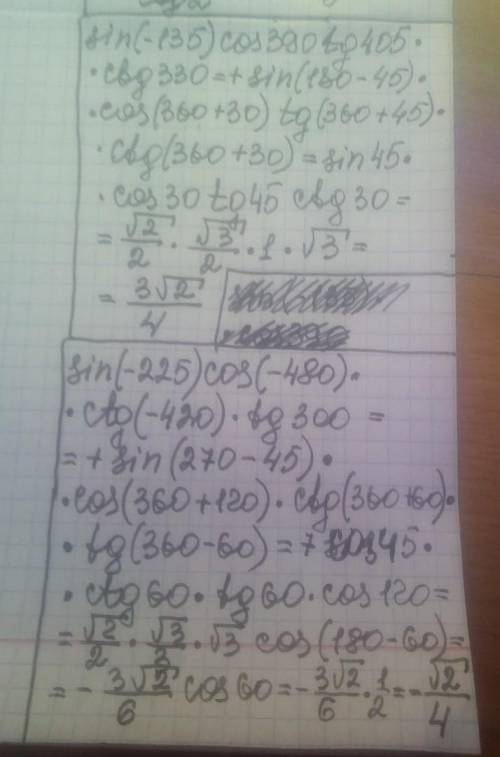 sin(-135)cos390tg405·
·ctg330=+sin(180-45)·
·cos(360+30)tg(360+45)·
·ctg(360+30)=sin45·
·cos30tg45 ctg30=
=√2/2·√3/2·1·√3=
=3√2/4
sin(-225)cos(-480)·
·ctg(-420)·tg300=
=+sin(270-45)·
·cos(360+120)·ctg(360+60)·
·tg(360-60)=+cos45·
·ctg60·tg60·cos120=
=√2/2·√3/3·√3 cos(180-60)=
=-3√2/6 cos60=-3√2/6·1/2=-√2/4